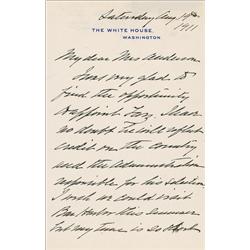 Saturday Aug 19th
1911
THE WHITE HOUSE
WASHINGTON
My dear Mrs Anderson
I was very glad to
find the opportunity
to appoint Larz. I have
no doubt he will reflect
credit on the country
and the Administration
responsible for his selection
I wish we could visit
Bar Harbor this summer
but my time is so short